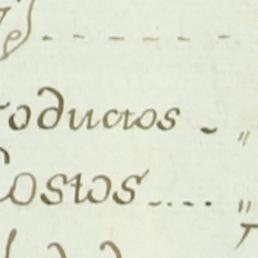 roductos - "
Costos .... "